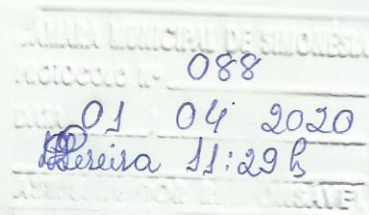 CÂMARA MUNICIPAL DE SIMONÉSIA
PROTOCOLO Nº 088
DATA 01 04 2020
Pereira 11:29 h